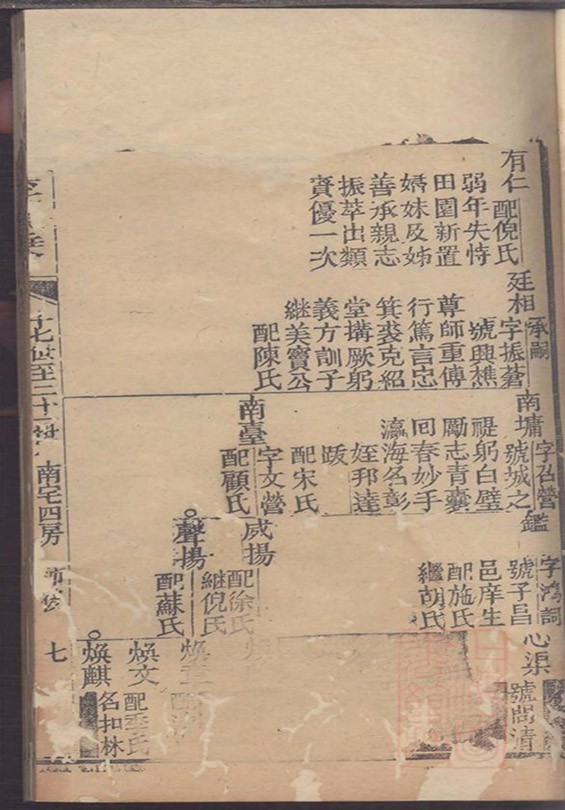 有仁
配倪氏
弱年失恃
田園新置
嬌妹及姊
善承親志
振萃出類
賚優一次
廷相
承嗣
字振蒼
號興樵
尊師重傳
行篤言忠
箕裘克紹
堂搆厥躬
義方訓子
繼美竇公
配陳氏
南墉
字召營
號城之
禔躬白璧
勵志青囊
回春妙手
瀛海名彰
姪邦達
跋
配宋氏
南臺
字文營
配顧氏
鑑
字鴻詞
號子昌
邑庠生
配施氏
繼胡氏
咸揚
配徐氏
繼倪氏
聲揚
配蘇氏
心渠
號問清
煥文
配季氏
煥麒
名扣林
十七世至二十一世
南宅四房
七